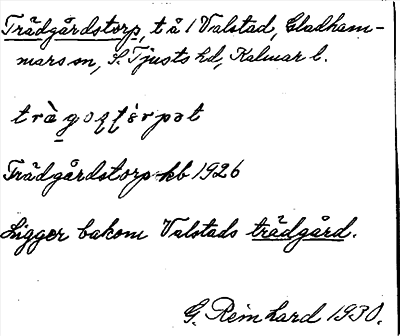 Trädgårdstorp, t å 1 Valstad, Gladham-
mars sn, S. Tjusts hd, Kalmar l.
Trädgårdstorp kb 1926
Ligger bakom Valstads trädgård.
G. Reinhard 1930.